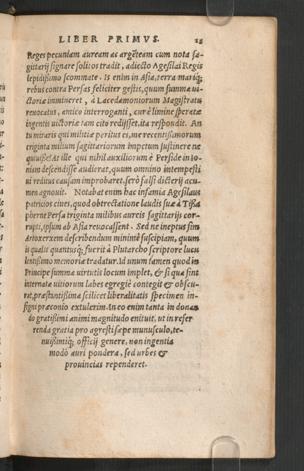 LIBER PRIMVS. 28
Reges pecuniam auream ac argēteam cum nota sa-
gittarij signare solitos tradit, adiecto Agesilai Regis
lepidissimo scommate. Is enim in Asia, terra mariq;
rebus contra Persas feliciter gestis, quum summa ui-
ctoriæ immineret, à Lacedæmoniorum Magistratu
reuocatus, amico interroganti, cur è limine speratæ
ingentis uictoriæ tam cito redisset, ita respondit. An
tu miraris qui militiæ peritus es, me recentissimorum
triginta milium sagittariorum impetum sustinere ne
quiuisse? At ille qui nihil auxiliorum è Perside in Io-
nium descendisse audierat, quum omnino intempesti
ui reditus causam improbaret, serò salsi dicterij acu-
men agnouit. Notabat enim hac infamia Agesilaus
patricios ciues, quod obtrectatione laudis suæ à Tissa
pherne Persa triginta milibus aureis sagittarijs cor-
rupti, ipsum ab Asia reuocassent. Sed ne ineptus sim
Artoxerxem describendum minimè suscipiam, quum
is qualis quantusq; fuerit à Plutarcho scriptore lucu
lentissimo memoriæ tradatur. Id unum tamen quod in
Principe summæ uirtutis locum implet, & si qua sint
internatæ uitiorum labes egregiè contegit & obscu-
rat, præstantissimæ scilicet liberalitatis specimen in-
signi præconio extulerim. In eo enim tanta in donan
do gratissimi animi magnitudo enituit, ut in refer
renda gratia pro agresti sæpe munusculo, te-
nuissimiq; officij genere, non ingentia
modò auri pondera, sed urbes &
prouincias rependeret.